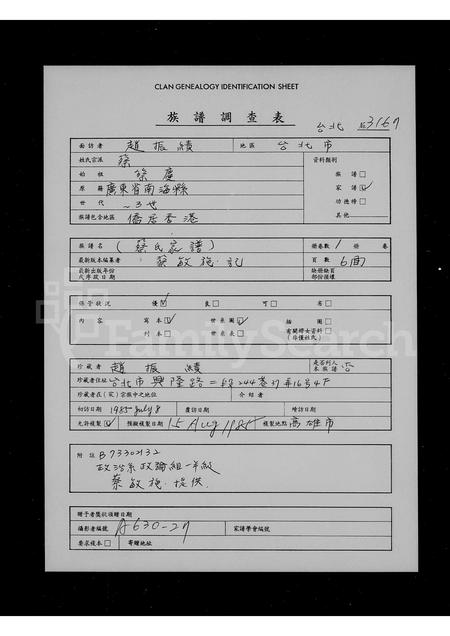 CLAN GENEALOGY IDENTIFICATION SHEET
族譜調查表
台北 3167
面訪者 趙振績 地區 台北市
姓氏宗派 蔡 資料類別
始祖 族譜
原籍 廣東省南海縣 家譜
世代 ~3世 功德榜
族譜包含地區 僑居香港 其他
族譜名 (蔡氏家譜) 冊卷數 1 冊 卷
最新版本編纂者 蔡敏施記 頁數 6面
最新出版年份或序跋日期 缺冊缺頁部份補填
保管狀況 優 良 可 劣
內容 寫本 世系圖 插圖
刊本 世系表 有關婦女資料(非僅姓氏)
珍藏者 趙振績 是否列入本族譜 否
珍藏者住址 台北市興隆路二段244巷37弄16号4F
珍藏者在(家)宗族中之地位 介紹者
初訪日期 1985 July 8 覆訪日期 增訪日期
允許複製 預擬複製日期 15 Aug 1985 複製地點 高雄市
附註 B73302132
政治系政論組一年級
蔡敏施提供.
贈予者獎狀頒贈日期
攝影者編號 A630-27 家譜學會編號
要求複本 寄贈地址
FamilySearch